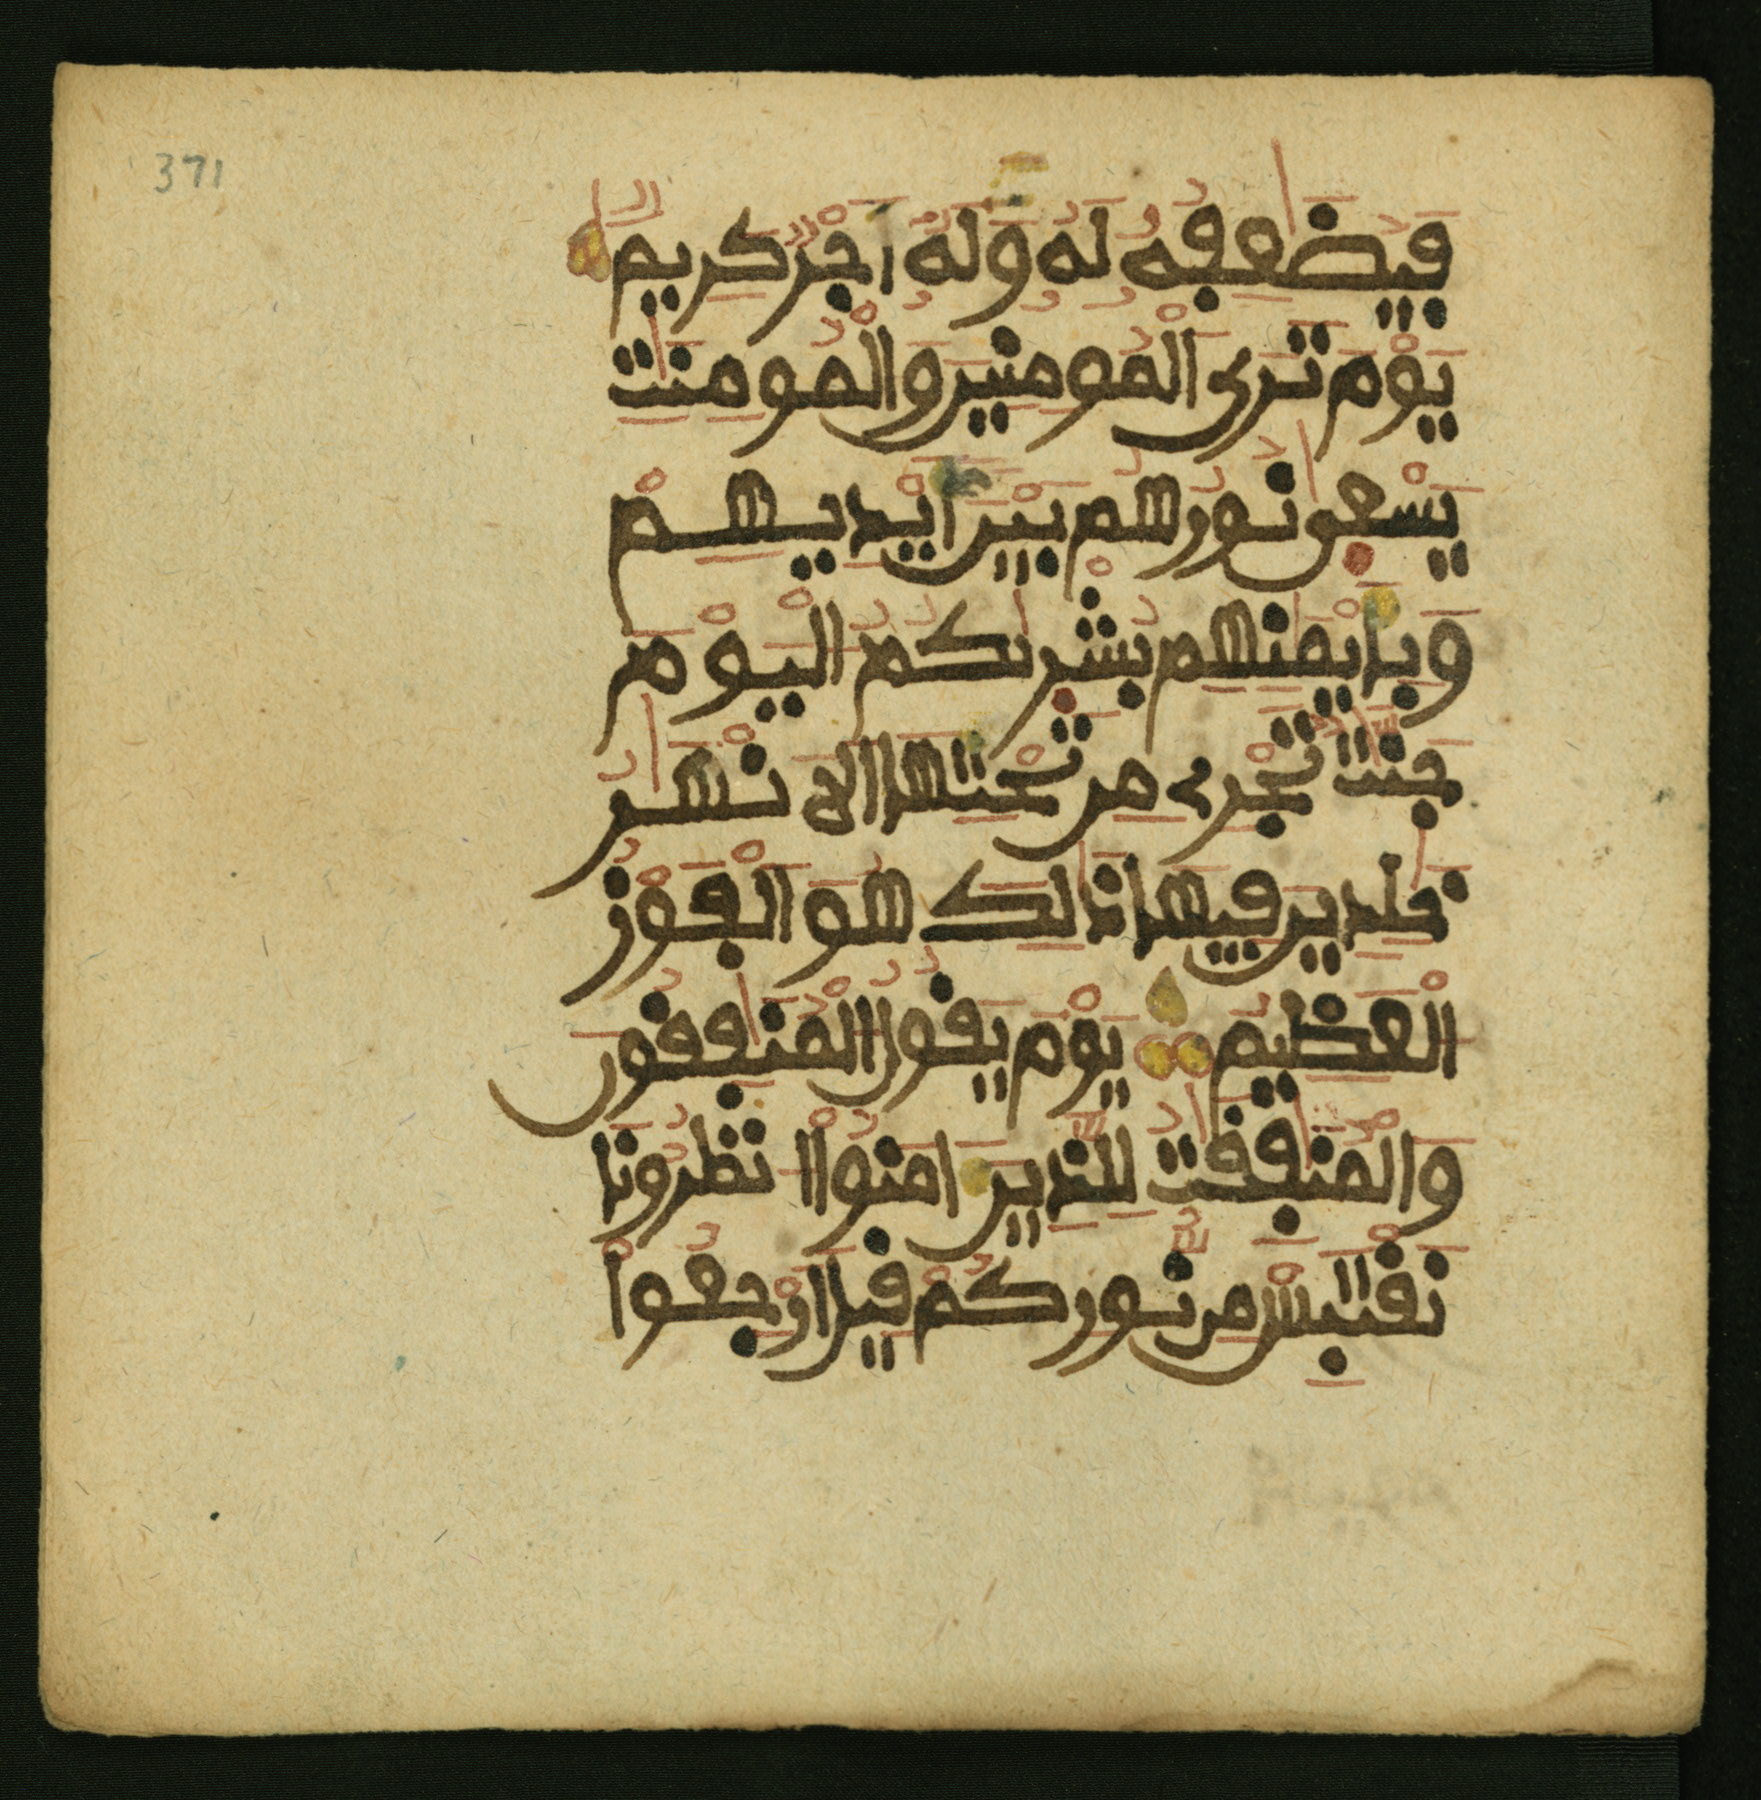 371
فَيُضَٰعِفُهُۥ لَهُۥ وَلَهُۥٓ أَجْرٌ كَرِيمٌ
يَوْمَ تَرَى ٱلْمُومِنِينَ وَٱلْمُومِنَٰتِ
يَسْعَىٰ نُورُهُم بَيْنَ أَيْدِيهِمْ
وَبِأَيْمَٰنِهِم بُشْرَىٰكُمُ ٱلْيَوْمَ
جَنَّٰتٌ تَجْرِى مِن تَحْتِهَا ٱلَانْهَٰرُ
خَٰلِدِينَ فِيهَا ذَالِكَ هُوَ ٱلْفَوْزُ
ٱلْعَظِيمُ يَوْمَ يَقُولُ ٱلْمُنَٰفِقُونَ
وَٱلْمُنَٰفِقَٰتُ لِلَّذِينَ ءَامَنُوا۟ ٱنظُرُونَا
نَقْتَبِسْ مِن نُّورِكُمْ قِيلَ ٱرْجِعُوا۟